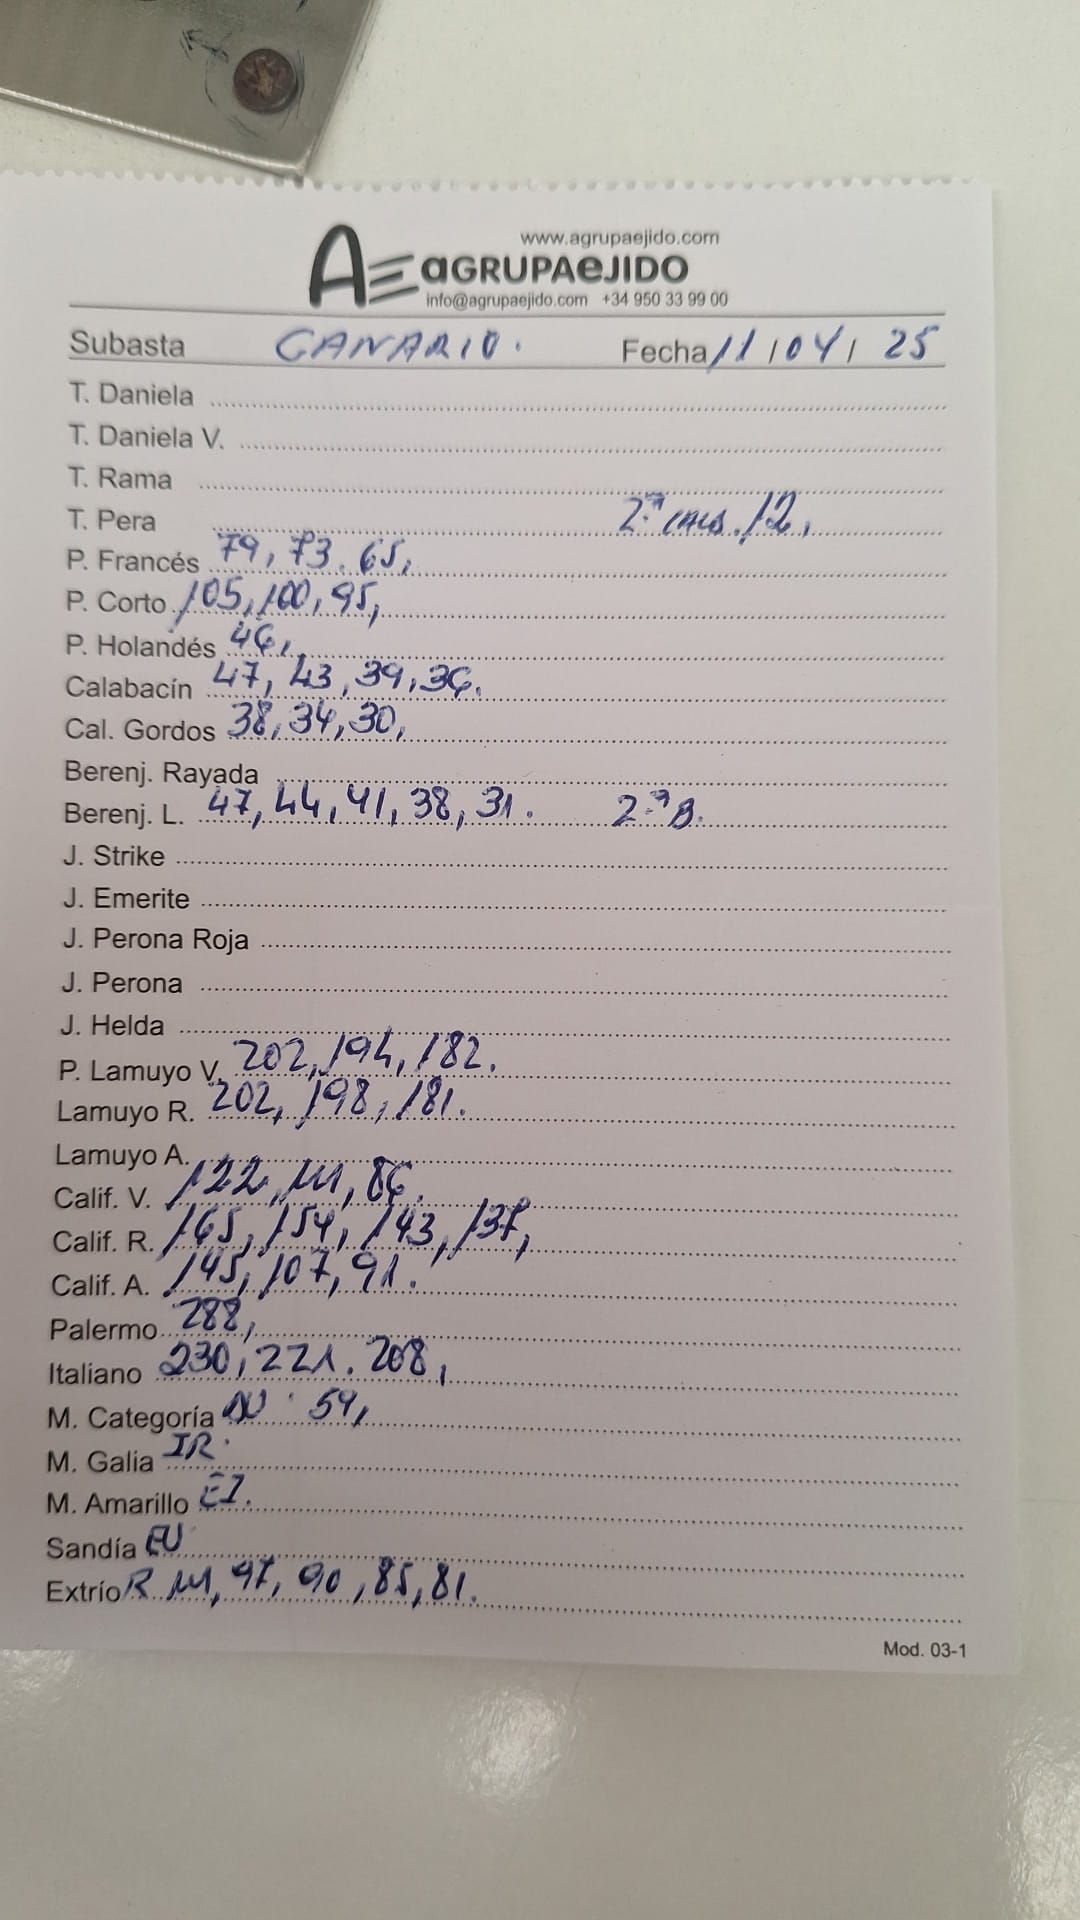 www.agrupaejido.com
AE aGRUPAeJIDO
info@agrupaejido.com +34 950 33 99 00
Subasta CANARIO. Fecha 11/04/25
T. Daniela
T. Daniela V.
T. Rama
T. Pera 2.ª 12,
P. Francés 79, 73. 65,
P. Corto 105, 100, 95,
P. Holandés 46,
Calabacín 47, 43, 39, 36.
Cal. Gordos 38, 34, 30,
Berenj. Rayada
Berenj. L. 47, 44, 41, 38, 31. 2.ª B.
J. Strike
J. Emerite
J. Perona Roja
J. Perona
J. Helda
P. Lamuyo V. 202, 194, 182.
Lamuyo R. 202, 198, 181.
Lamuyo A.
Calif. V. 122, 111, 86.
Calif. R. 165, 154, 143, 137,
Calif. A. 145, 107, 91.
Palermo 288,
Italiano 230, 221. 208,
M. Categoría 59,
M. Galia IR.
M. Amarillo EI.
Sandía EU
Extrío R 111, 97, 90, 85, 81.
Mod. 03-1